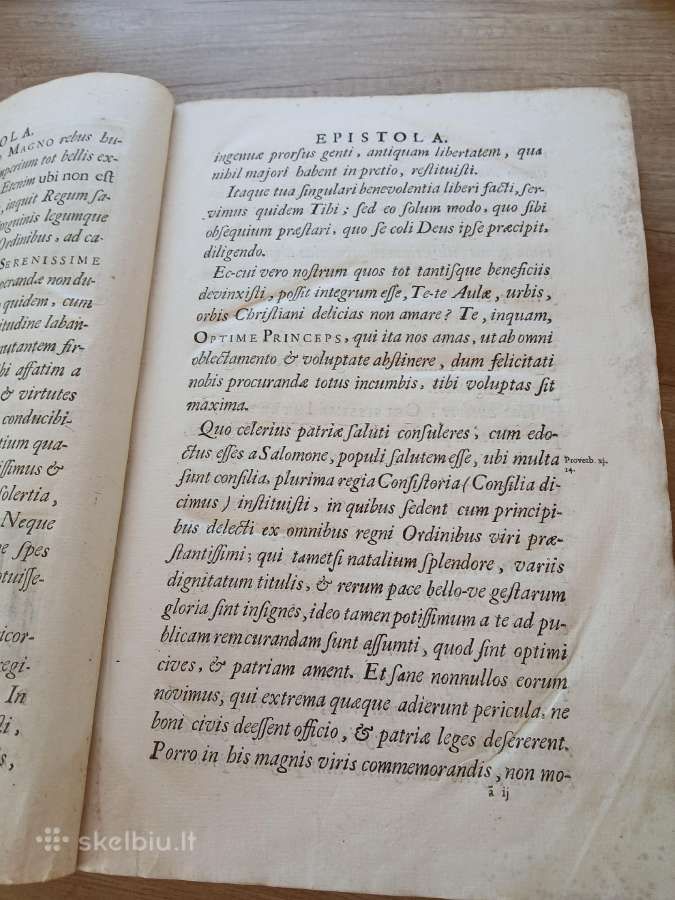 OLA.
MAGNO rebus hu-
mperium tot bellis ex-
Etenim ubi non est
, inquit Regum ſa-
onguinis legumque
Ordinibus, ad ca-
SERENISSIME
ocurandæ non du-
quidem, cum
itudine laban-
nutantem fir-
bi affatim a
& virtutes
conducibi-
tium qua-
iſſimus &
ſolertia,
Neque
ne spes
otuiſſe-
icor-
regi-
In
ſti,
s,
EPISTOLA.
ingenuæ prorſus genti, antiquam libertatem, qua
nihil majori habent in pretio, reſtituiſti.
Itaque tua ſingulari benevolentia liberi facti, ſer-
vimus quidem Tibi; ſed eo ſolum modo, quo ſibi
obſequium præſtari, quo ſe coli Deus ipſe præcipit,
diligendo.
Ec-cui vero noſtrum quos tot tantiſque beneficiis
devinxiſti, poſſit integrum eſſe, Te-te Aulæ, urbis,
orbis Chriſtiani delicias non amare? Te, inquam,
OPTIME PRINCEPS, qui ita nos amas, ut ab omni
oblectamento & voluptate abſtinere, dum felicitati
nobis procurandæ totus incumbis, tibi voluptas ſit
maxima.
Quo celerius patriæ ſaluti conſuleres, cum edo-
ctus eſſes a Salomone, populi ſalutem eſſe, ubi multa
Proverb. xj.
14.
ſunt conſilia, plurima regia Conſiſtoria (Conſilia di-
cimus) inſtituiſti, in quibus ſedent cum principi-
bus delecti ex omnibus regni Ordinibus viri præ-
ſtantiſſimi; qui tametſi natalium ſplendore, variis
dignitatum titulis, & rerum pace bello-ve geſtarum
gloria ſint inſignes, ideo tamen potiſſimum a te ad pu-
blicam rem curandam ſunt aſſumti, quod ſint optimi
cives, & patriam ament. Et ſane nonnullos eorum
novimus, qui extrema quæque adierunt pericula, ne
boni civis deeſſent officio, & patriæ leges deſererent.
Porro in his magnis viris commemorandis, non mo-
ã ij
skelbiu.lt